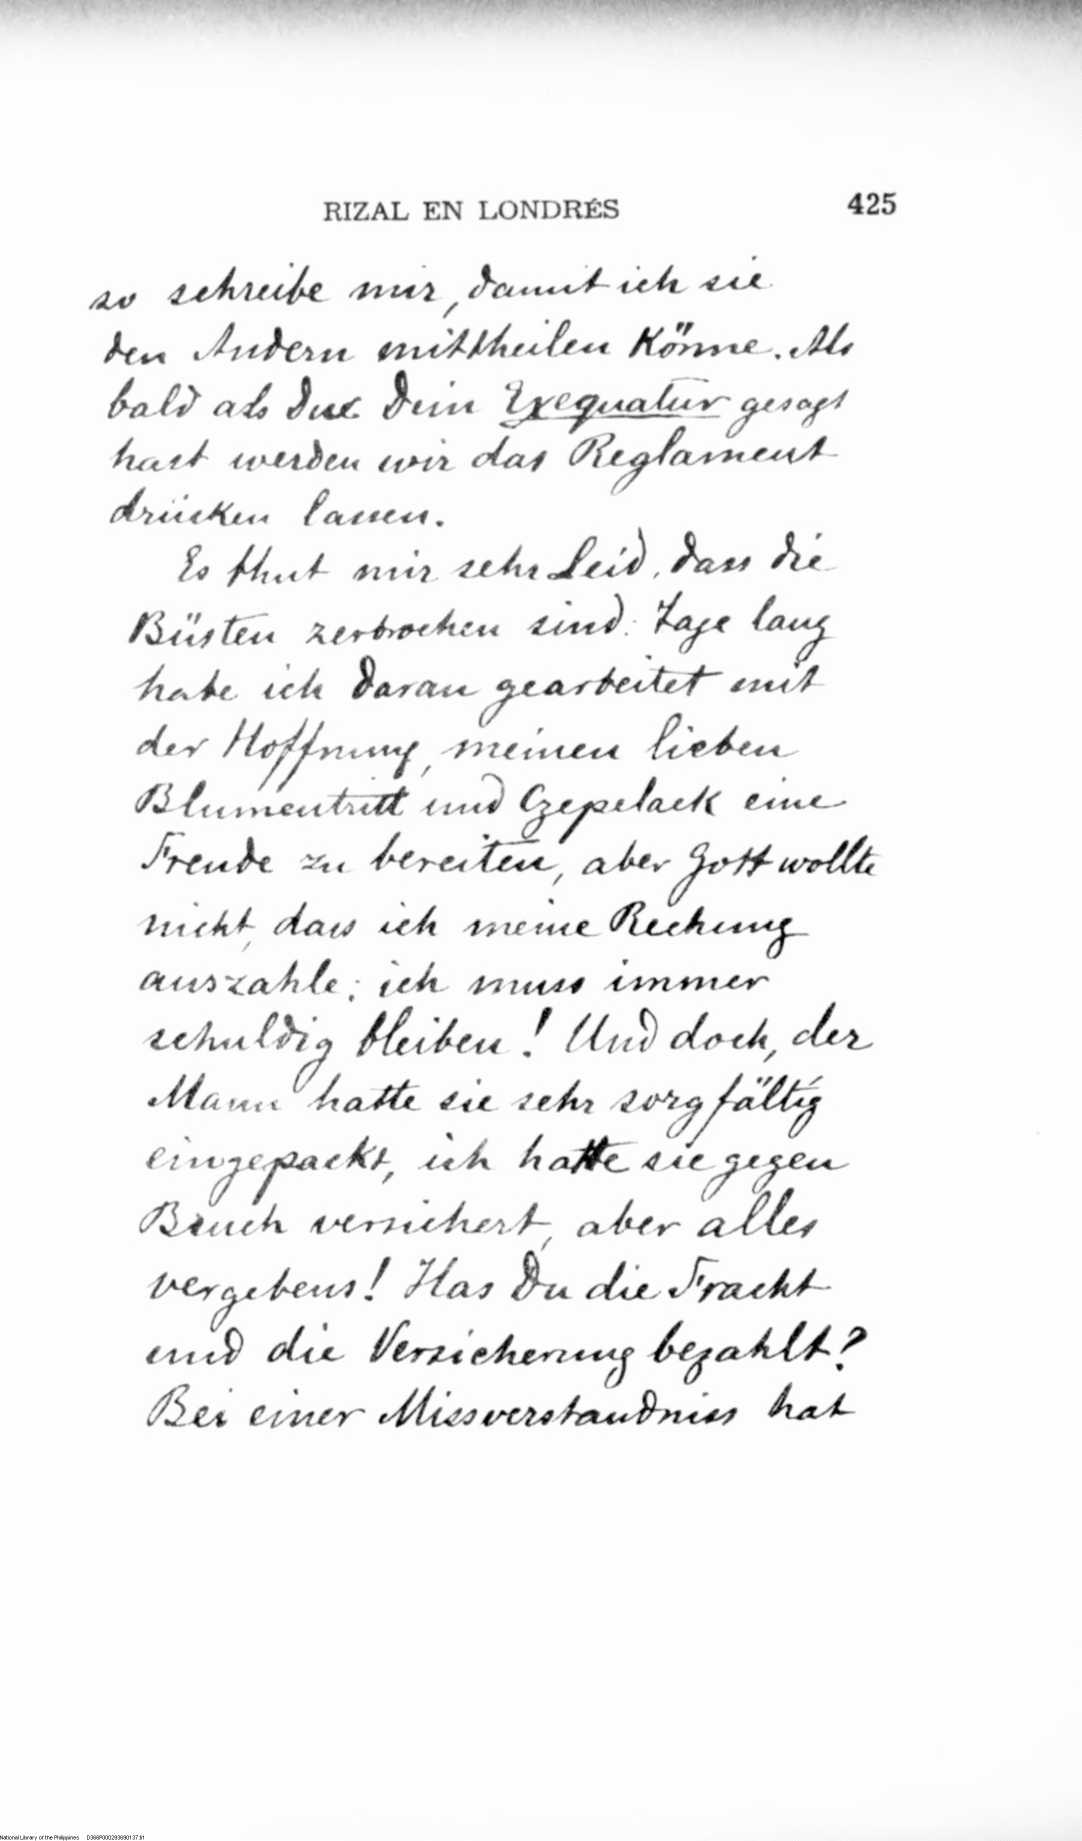 RIZAL EN LONDRÉS 425
so schreibe mir, damit ich sie
den Andern mittheilen Könne. Als
bald als Du Dein Exequatur gesagt
hast werden wir das Reglament
drüsken lassen.
Es thut mir sehr Leid, dass die
Büsten zerbrochen sind: Tage lang
habe ich daran gearbeitet mit
der Hoffnung, meinen lieben
Blumentritt und Czepelack eine
Freude zu bereiten, aber Gott wollte
nicht, dass ich meine Rechung
auszahle; ich muss immer
schuldig bleiben! Und doch, der
Mann hatte sie sehr sorgfältig
eingepackt, ich hatte sie gegen
Bruch versichert, aber alles
vergebens! Has Du die Fracht
und die Versicherung bezahlt?
Bei einer Missverstandniss hat
National Library of the Philippines